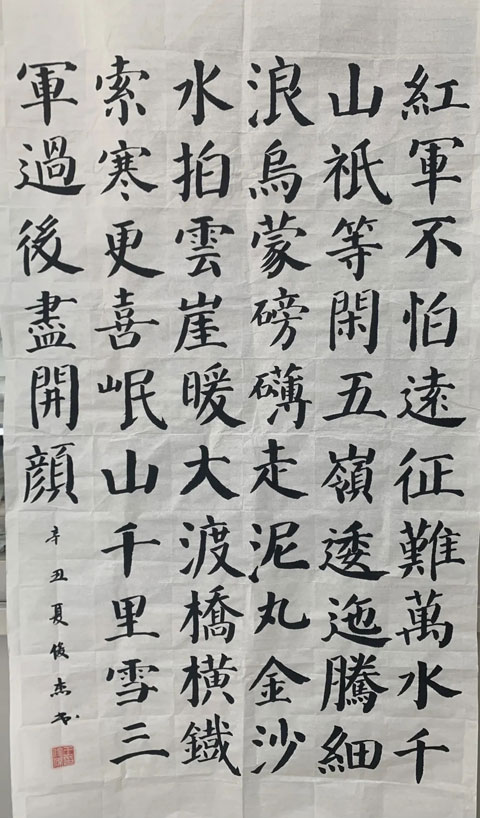 紅軍不怕遠征難萬水千
山祇等閑五嶺逶迤騰細
浪烏蒙磅礴走泥丸金沙
水拍雲崖暖大渡橋橫鐵
索寒更喜岷山千里雪三
軍過後盡開顏
辛丑夏俊杰书